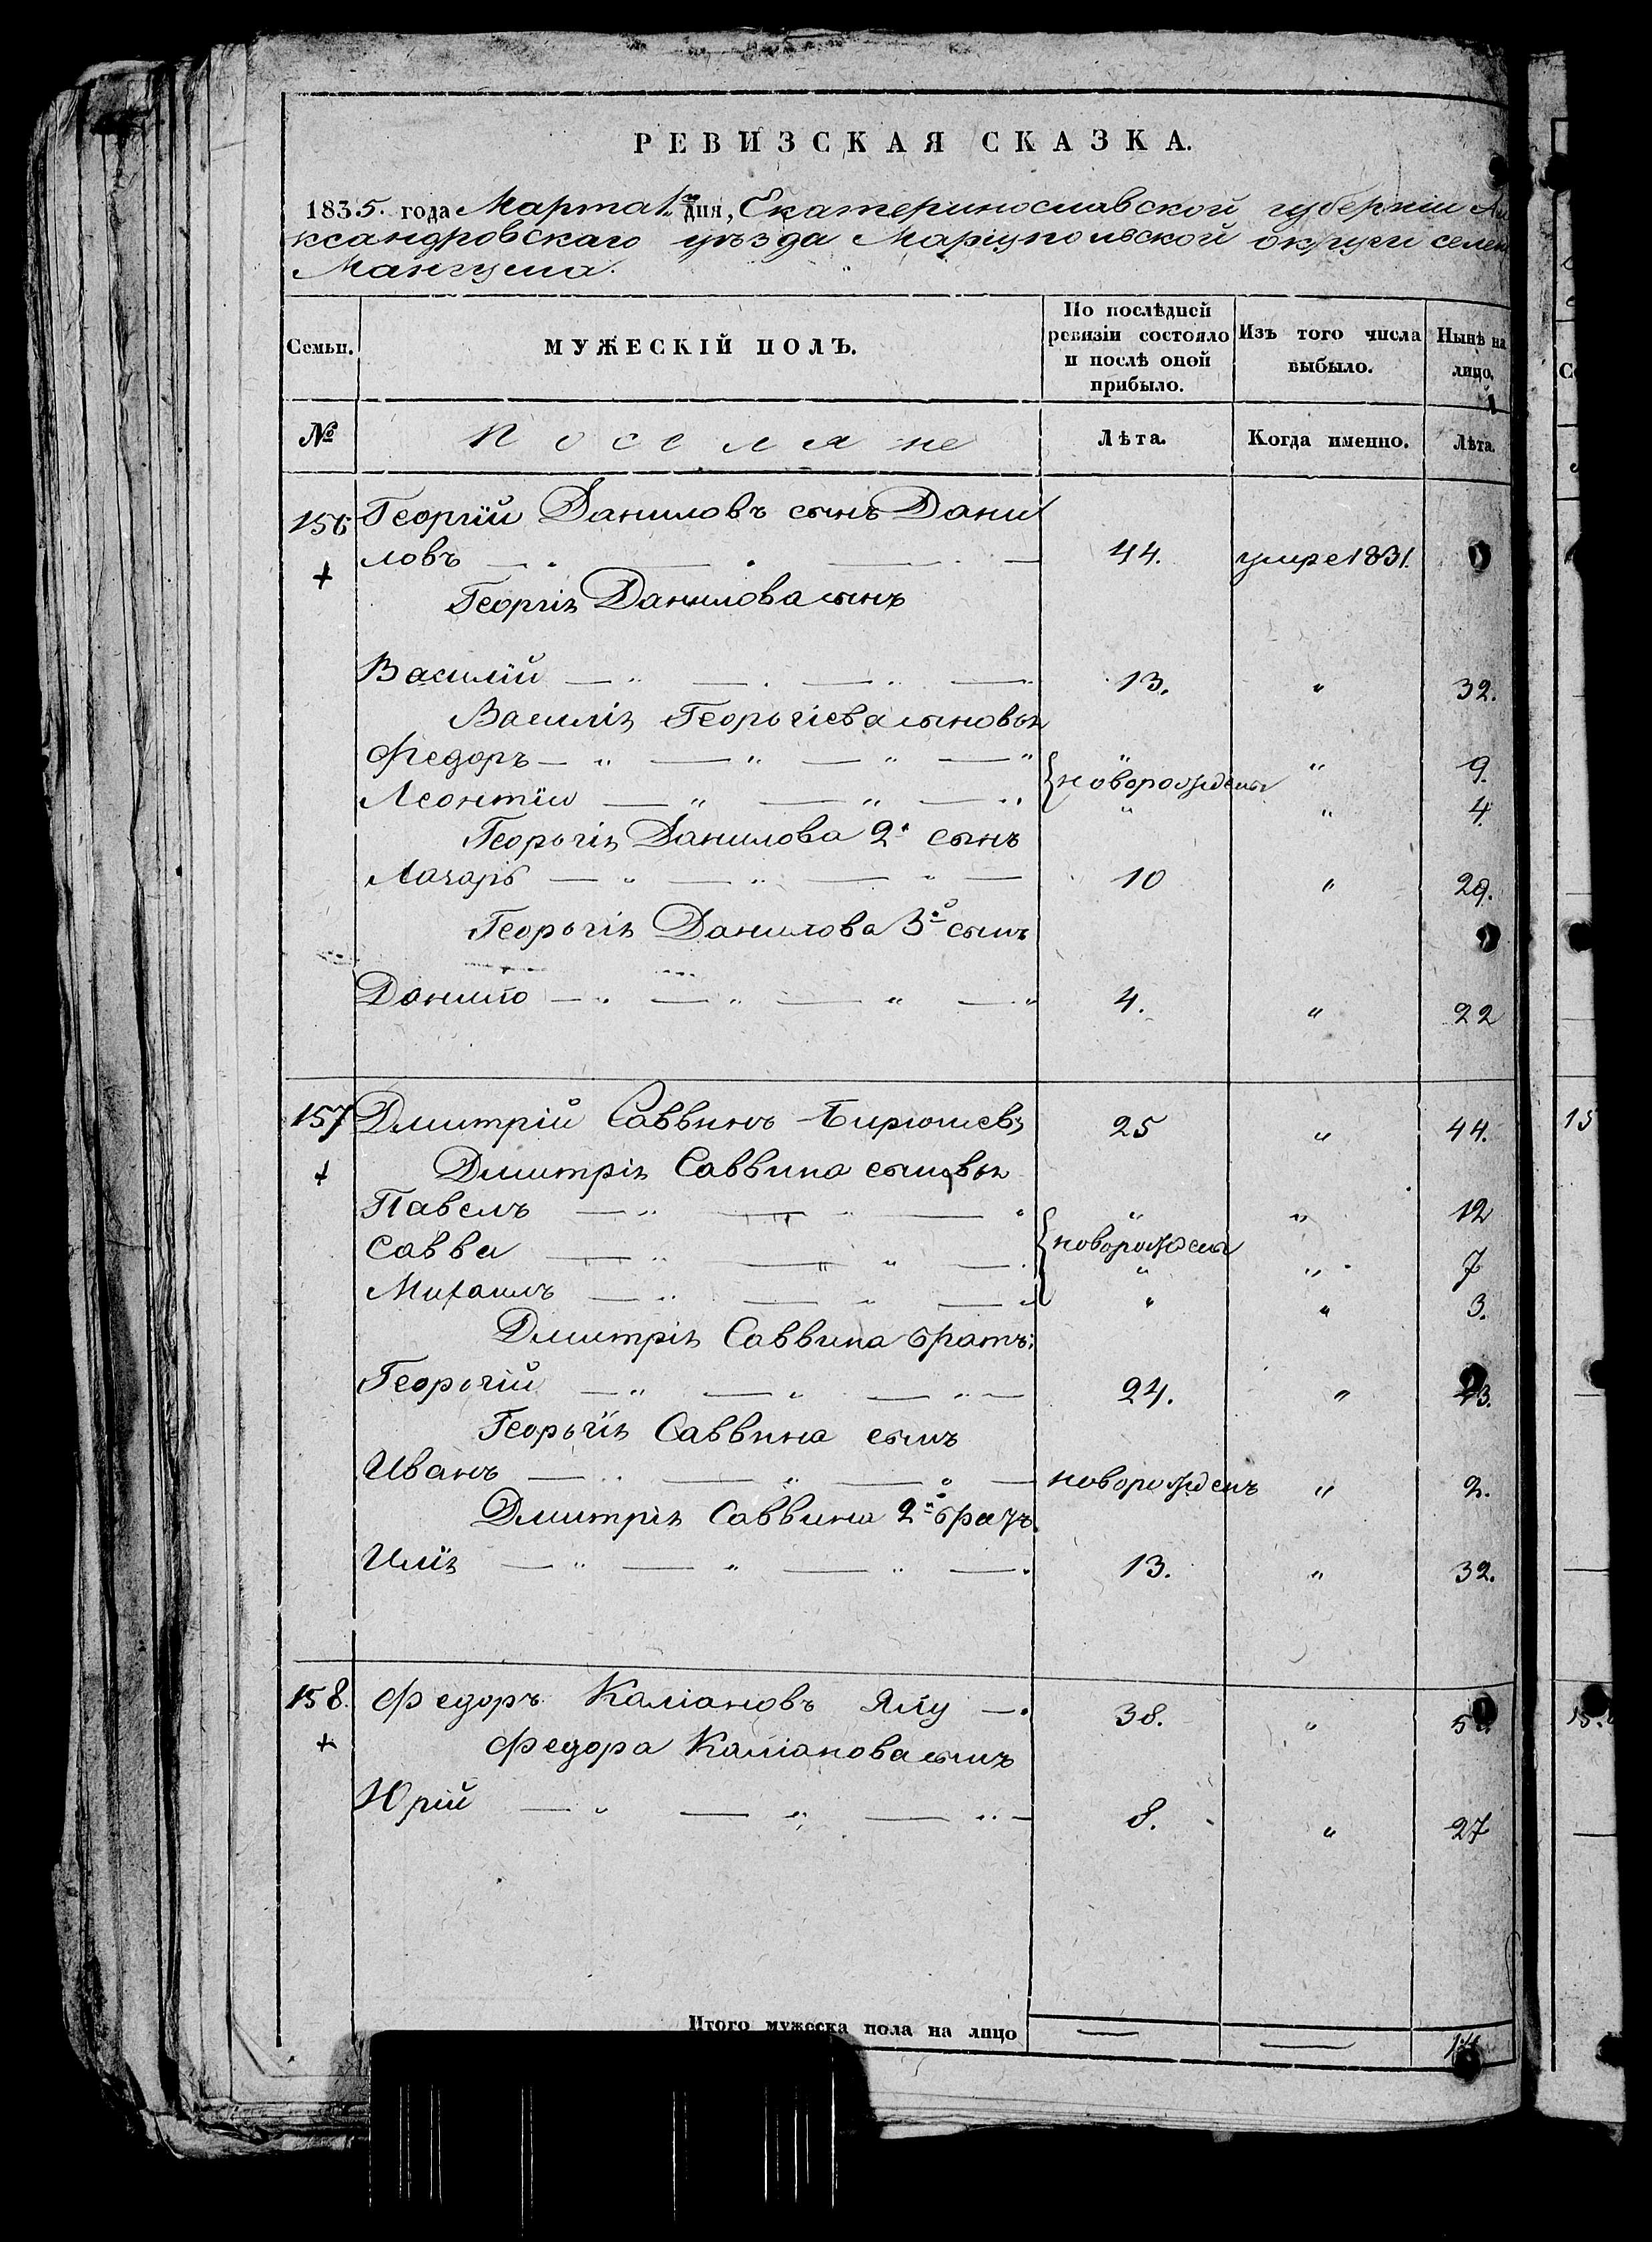 РЕВИЗСКАЯ СКАЗКА.
1835. года Марта 1го дня, Екатеринославской губерніи Але
ксандровскаго уѣзда Маріупольской округи селен
Мангуша.
Семьи. МУЖЕСКІЙ ПОЛЪ. По послѣдней ревизіи состояло и послѣ оной прибыло. Изъ того числа выбыло. Нынѣ на лицо.
№ Поселяне Лѣта. Когда именно. Лѣта.
156 Георгій Даниловъ сынъ Дани
ловъ 44. умре 1831.
Георгія Данилова сынъ
Василій 13. " 32.
Василія Георьгіева сыновья
Федоръ " " 9.
{новорожденъ
Леонтій " " 4
Георьгія Данилова 2й сынъ
Лазарь 10 " 29.
Георьгія Данилова 3й сынъ
Данило 4. " 22
157 Дмитрій Саввинъ Бирюшевъ 25 " 44.
Дмитрія Саввина сыновья
Павелъ " " 12
{новорожденъ
Савва " " 7
Михаилъ " " 3.
Дмитрія Саввина братъ:
Георьгій 24. " 43.
Георьгія Саввина сынъ
Иванъ новорожденъ " 2.
Дмитрія Саввина 2й братъ
Илія 13. " 32.
158. Федоръ Каліановъ Ялу 38. "
Федора Каліанова сынъ
Юрій 8. " 27
Итого мужеска пола на лицо — —